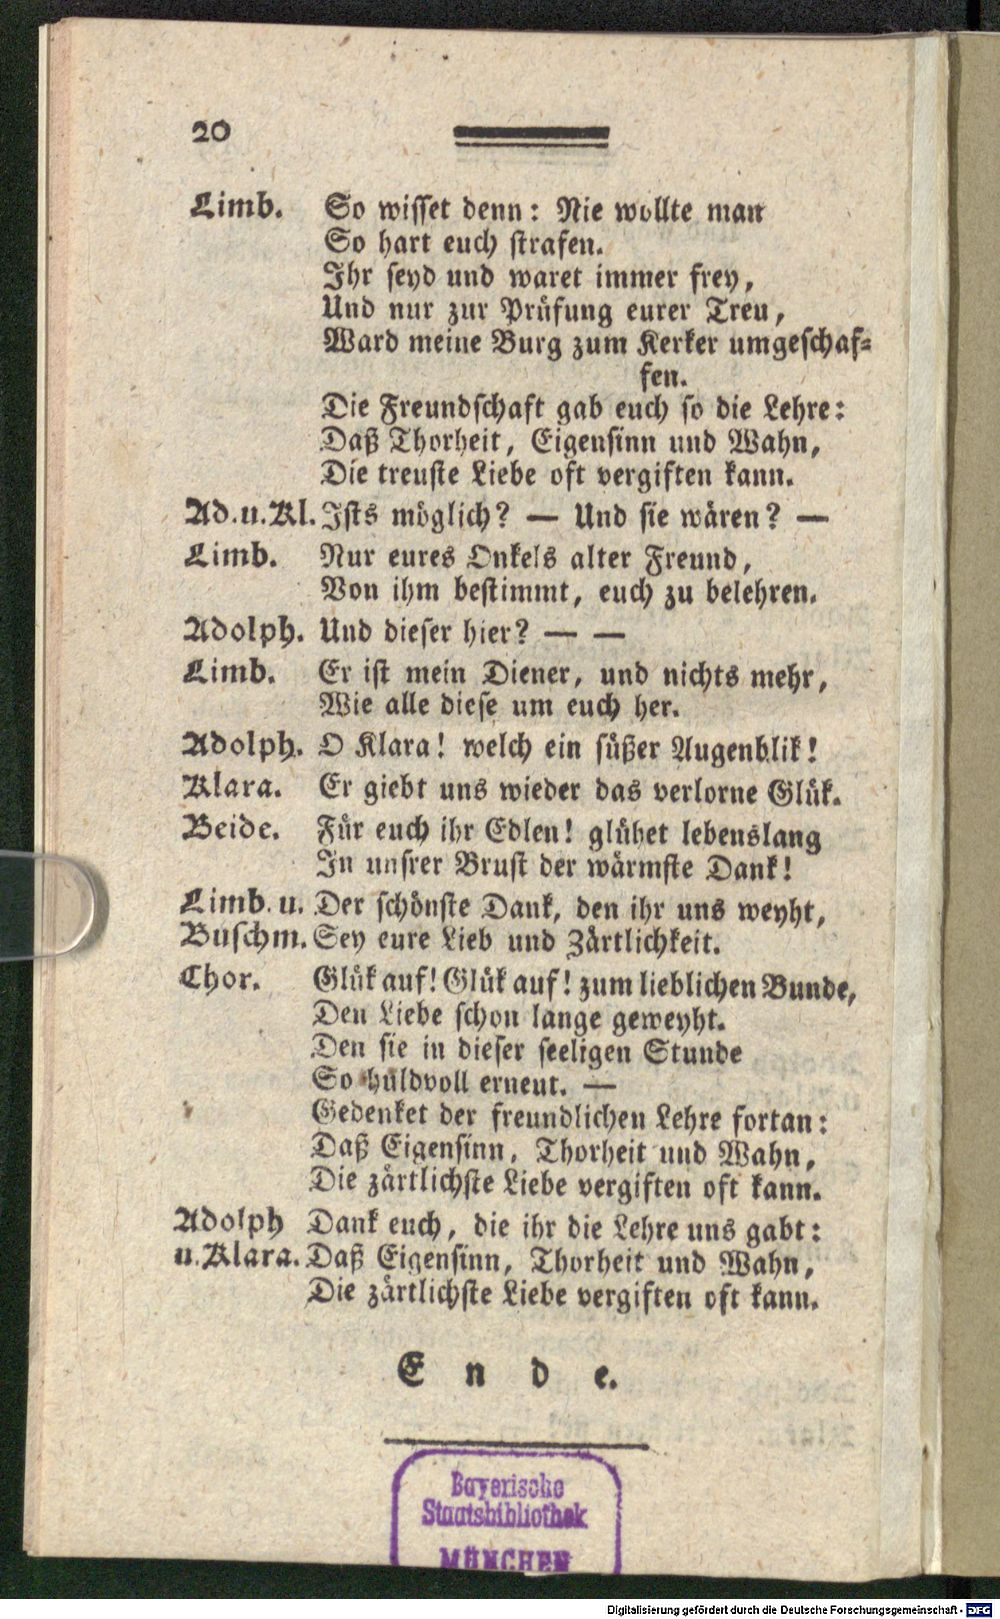 20
Limb. So wisset denn: Nie wollte man
So hart euch strafen.
Ihr seyd und waret immer frey,
Und nur zur Prüfung eurer Treu,
Ward meine Burg zum Kerker umgeschaf-
fen.
Die Freundschaft gab euch so die Lehre:
Daß Thorheit, Eigensinn und Wahn,
Die treuste Liebe oft vergiften kann.
Ad. u. Kl. Ists möglich? — Und sie wären? —
Limb. Nur eures Onkels alter Freund,
Von ihm bestimmt, euch zu belehren.
Adolph. Und dieser hier? — —
Limb. Er ist mein Diener, und nichts mehr,
Wie alle diese um euch her.
Adolph. O Klara! welch ein süßer Augenblik!
Klara. Er giebt uns wieder das verlorne Glük.
Beide. Für euch ihr Edlen! glühet lebenslang
In unsrer Brust der wärmste Dank!
Limb. u. Der schönste Dank, den ihr uns weyht,
Buschm. Sey eure Lieb und Zärtlichkeit.
Chor. Glük auf! Glük auf! zum lieblichen Bunde,
Den Liebe schon lange geweyht.
Den sie in dieser seeligen Stunde
So huldvoll erneut. —
Gedenket der freundlichen Lehre fortan:
Daß Eigensinn, Thorheit und Wahn,
Die zärtlichste Liebe vergiften oft kann.
Adolph Dank euch, die ihr die Lehre uns gabt:
u. Klara. Daß Eigensinn, Thorheit und Wahn,
Die zärtlichste Liebe vergiften oft kann.
Ende.
Bayerische
Staatsbibliothek
MÜNCHEN
Digitalisierung gefördert durch die Deutsche Forschungsgemeinschaft - DFG